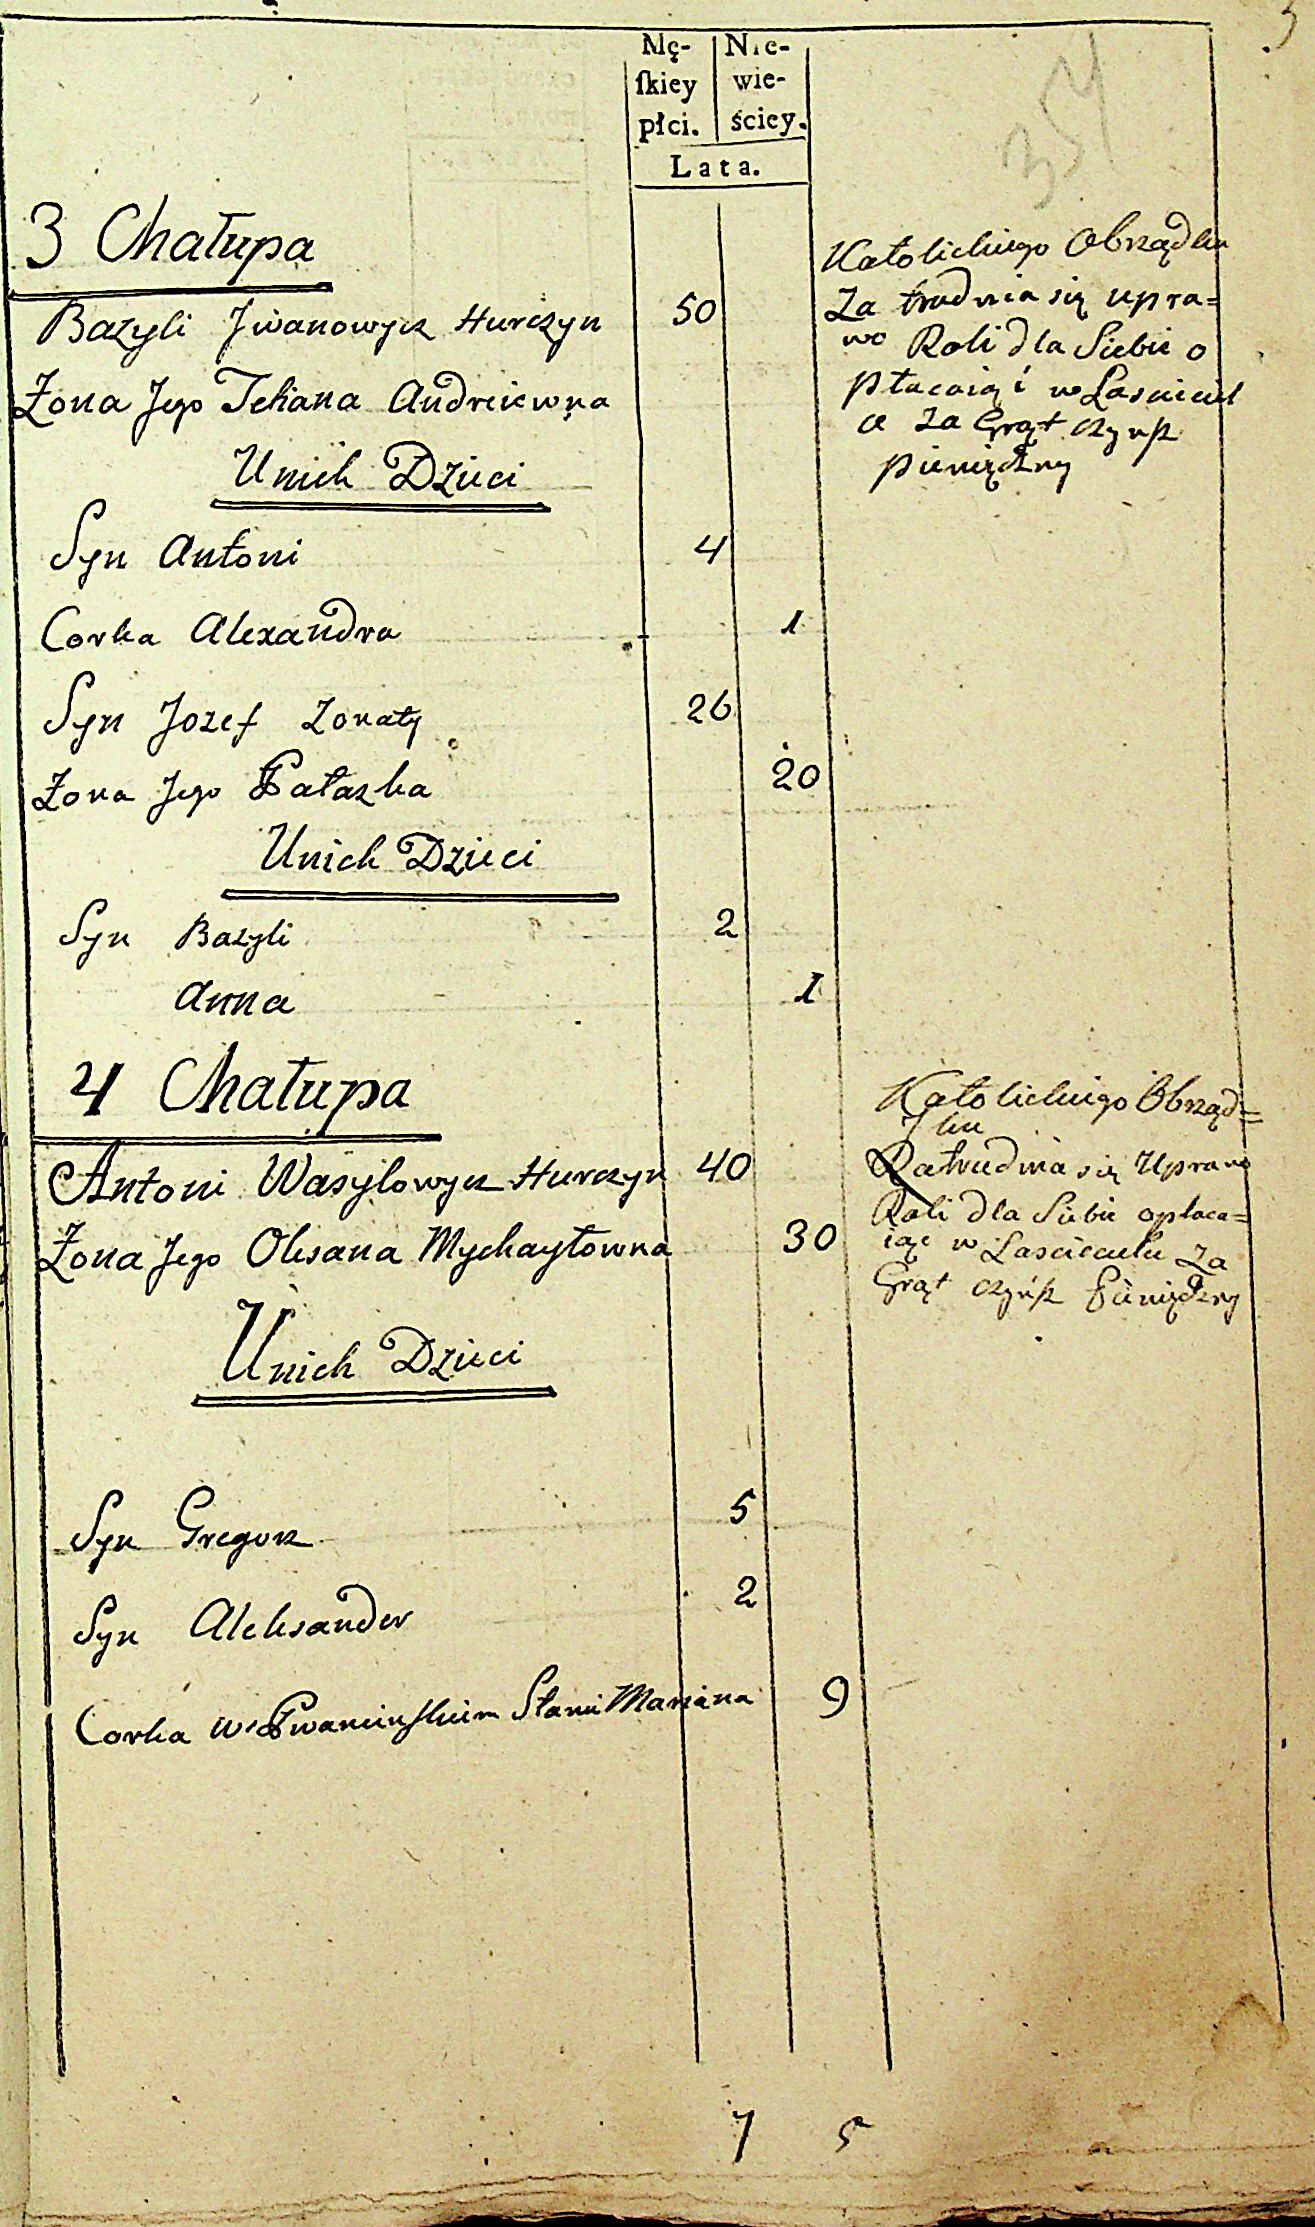 3
34
Mę- Nie-
ſkiey wie-
płci. ściey.
Lata.
3 Chałupa
Bazyli Jwanowycz Hurczyn 50
Żona Jego Tekiana Andreiewna
Unich Dzieci
Syn Antoni 4
Corka Alexandra 1
Syn Jozef Zonaty 26
Żona Jego Pałazka 20
Unich Dzieci
Syn Bazyli 2
Anna 1
Katolickiego Obrządku
Zatrudnia się upra=
wo Roli dla Siebie o
płacaią i w Łascicul
ce za Grąt czynsz
pieniężny
4 Chałupa
Antoni Wasylowycz Hurczyn 40
Żona Jego Oksana Mychayłowna 30
Unich Dzieci
Syn Gregorz 5
Syn Aleksander 2
Corka w Stanie Mariana 9
Katolickiego Obrząd=
ku
Zatrudnia się Uprawo
Roli dla Siebie opłaca=
iąc w za
Grąt czynsz Pieniężny
7 5